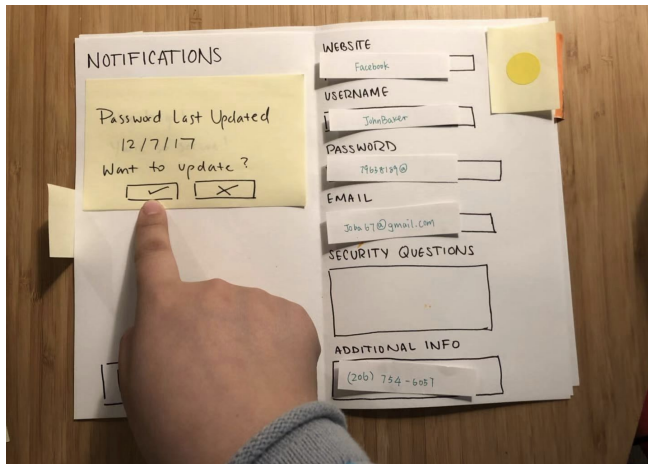 NOTIFICATIONS
Password Last Updated
12/7/17
Want to update?
WEBSITE
Facebook
USERNAME
JohnBaker
PASSWORD
79658189@
EMAIL
John67@gmail.com
SECURITY QUESTIONS
ADDITIONAL INFO
(206) 754-6057